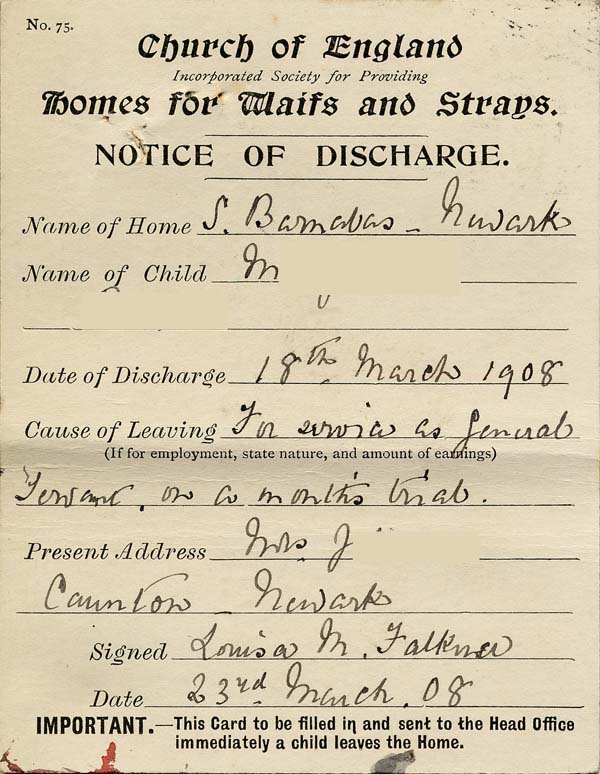 No. 75.
Church of England
Incorporated Society for Providing
Homes for Waifs and Strays.
NOTICE OF DISCHARGE.
Name of Home S. Barnabas - Newark
Name of Child M
Date of Discharge 18th March 1908
Cause of Leaving For service as general
(If for employment, state nature, and amount of earnings)
Servant, on a month's trial.
Present Address Mrs J
Caunton - Newark
Signed Louisa M. Falkner
Date 23rd March. 08
IMPORTANT.—This Card to be filled in and sent to the Head Office
immediately a child leaves the Home.